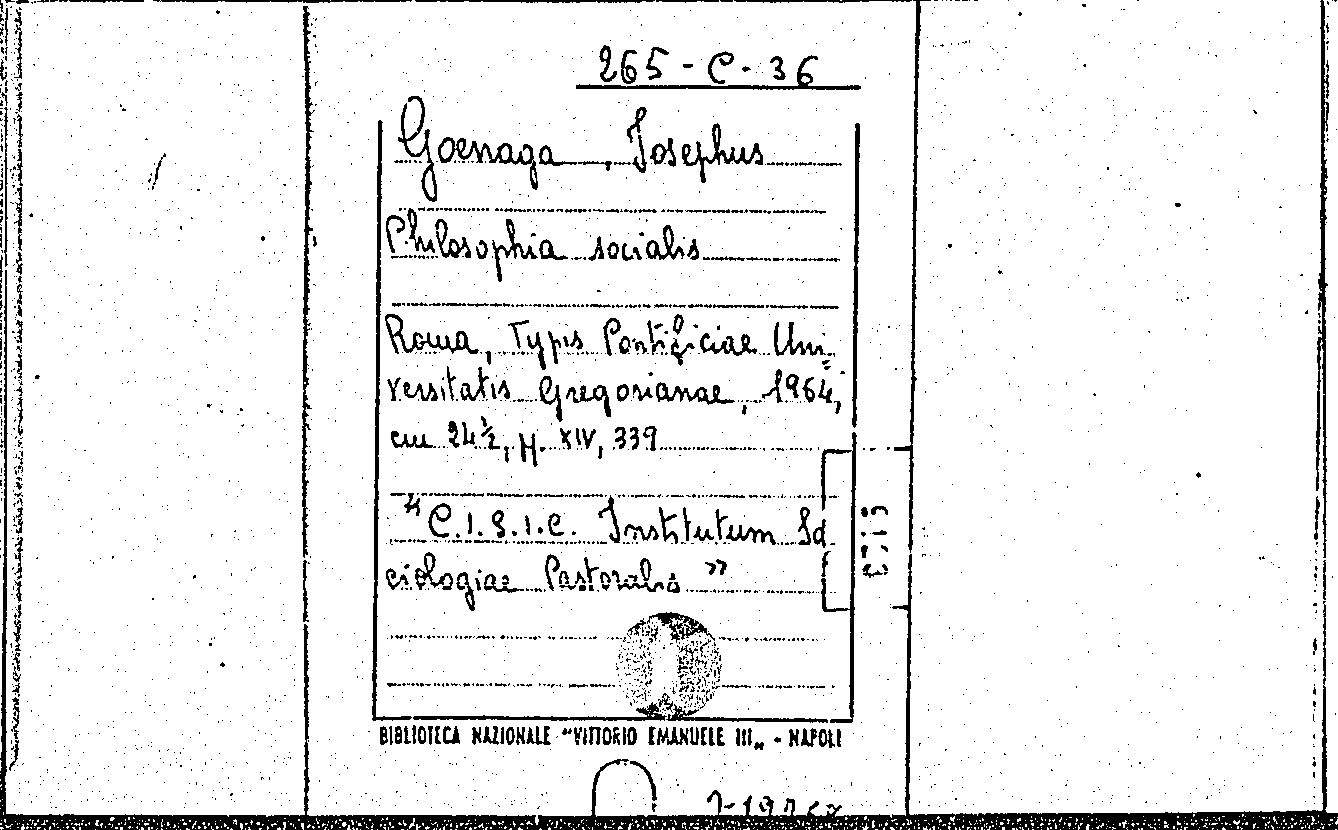 265-C-36
Goenaga, Josephus
Philosophia socialis
Roma, Typis Pontificiae Uni=
versitatis Gregorianae, 1964,
cm 24½, pp. XIV, 339
"C.I.S.I.C. Institutum So
ciologiae Pastoralis"
BIBLIOTECA NAZIONALE "VITTORIO EMANUELE III„ - NAPOLI